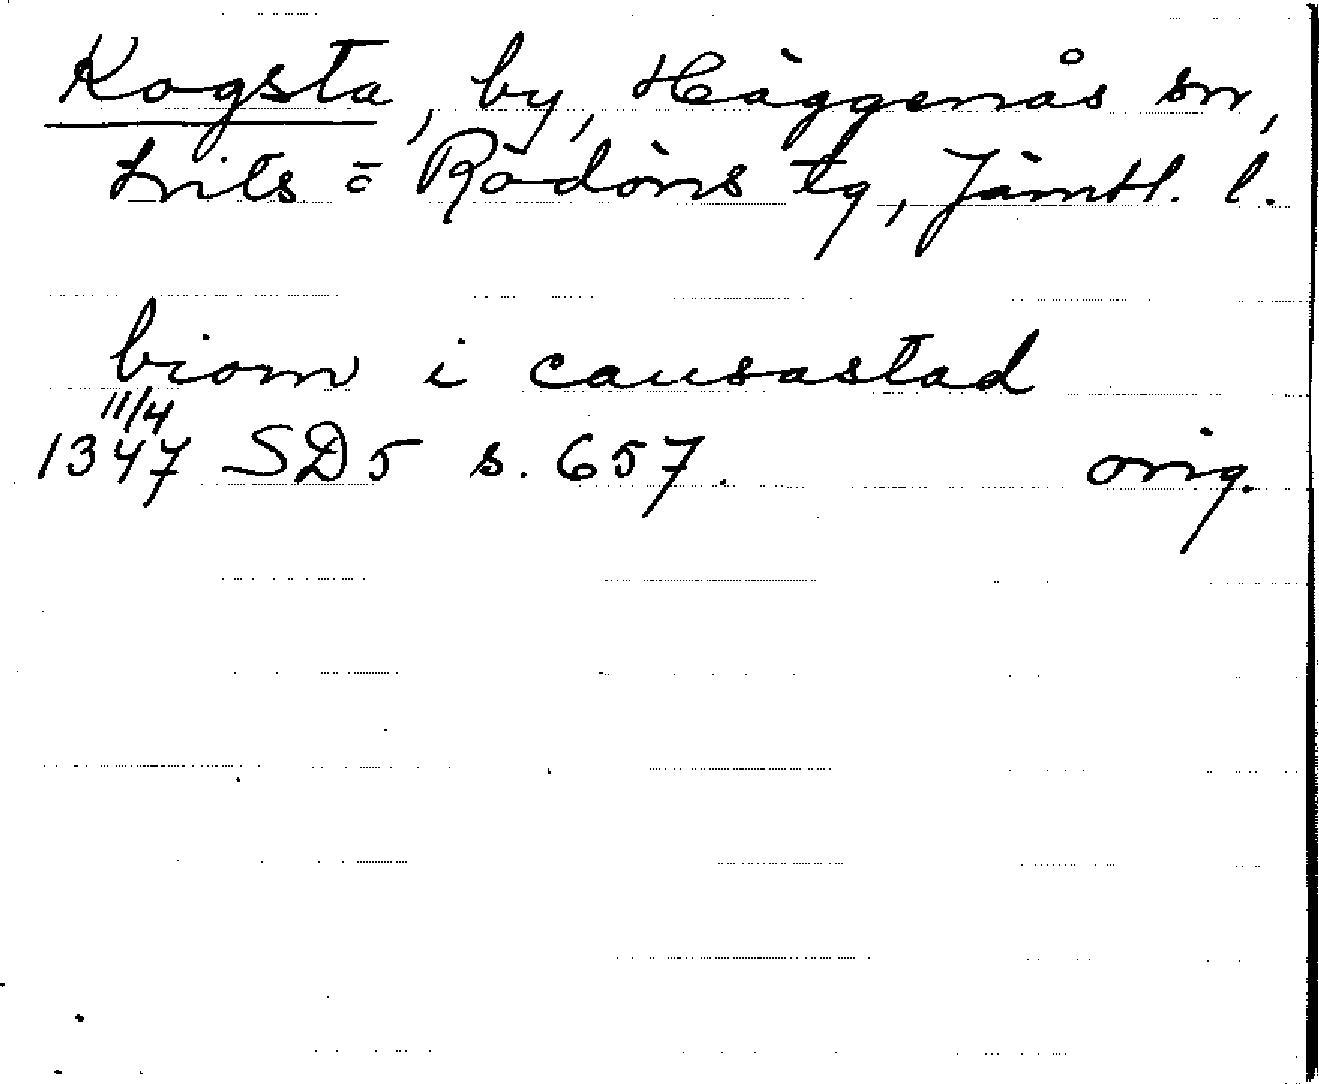 Kogsta, by, Häggenås sn,
Lits o Rödöns tg, Jämtl. l.
biom i causastad
11/4
1347 SD 5 s. 657. orig.